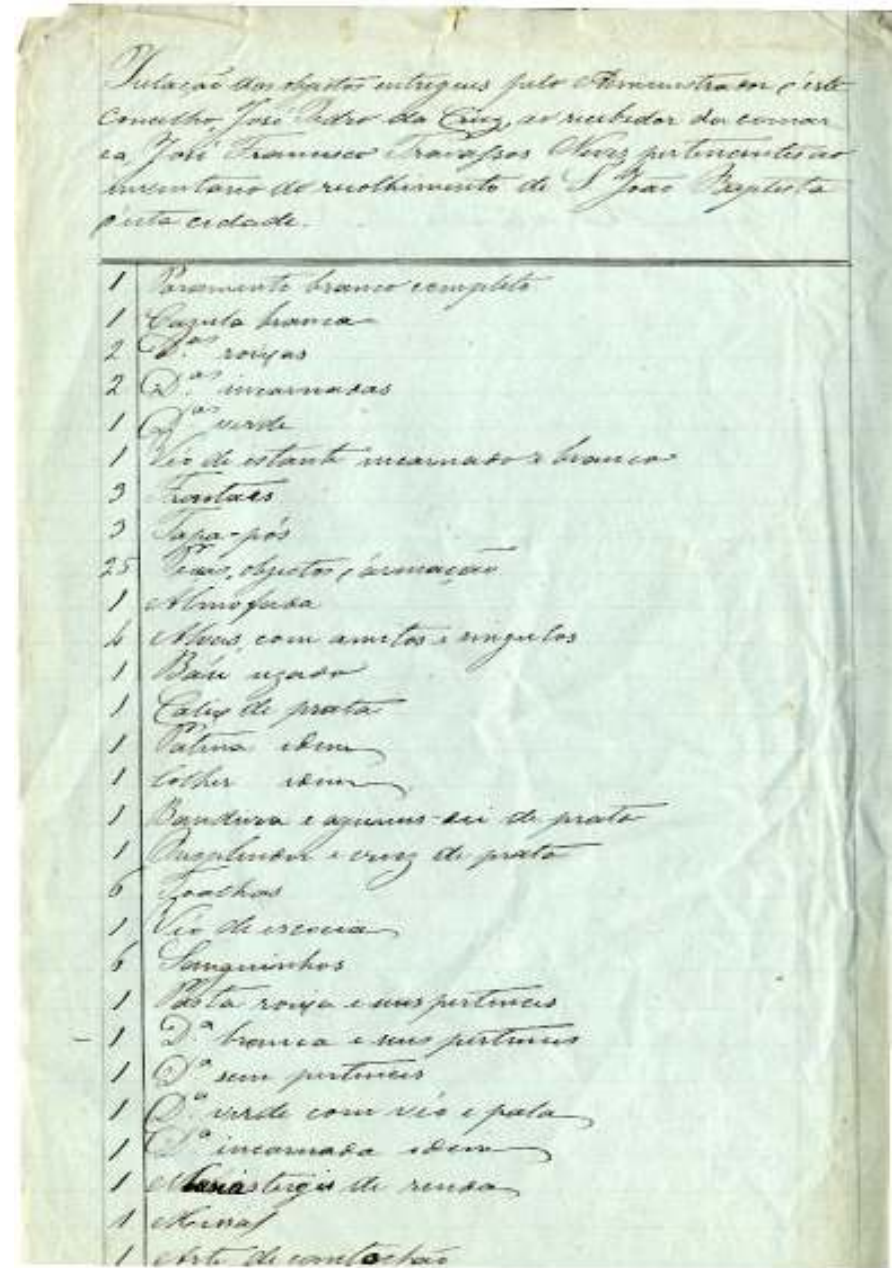 Relação dos objectos entregues pelo Administrador d'este
Concelho, José Pedro da Cruz, ao recebedor da comar
ca, José Francisco Travassos Neves pertencentes ao
inventario do recolhimento de S João Baptista
d'esta cidade.
1 Paramento branco completo
1 Cazula branca
2 D.as roixas
2 D.as incarnadas
1 D.as verde
1 Véo de estante incarnado e branco
3 Frontaes
3 Tapa-pós
25 Peças, objectos d'armação
1 Almofada
6 Alvas, com amitos e singulos
1 Baú uzado
1 Calix de prata
1 Patena idem
1 Colher idem
1 Bandeira e agnus-dei de prata
1 e cruz de prata
6 Toalhas
1 Véo de escocia
6 Sanguinhos
1 Pasta roixa e seus pertences
1 D.a branca e seus pertences
1 D.a sem pertences
1 D.a verde com véo e pala
1 D.a incarnada idem
1 Manustergio de renda
1 Missal
1 Arte de cantochão